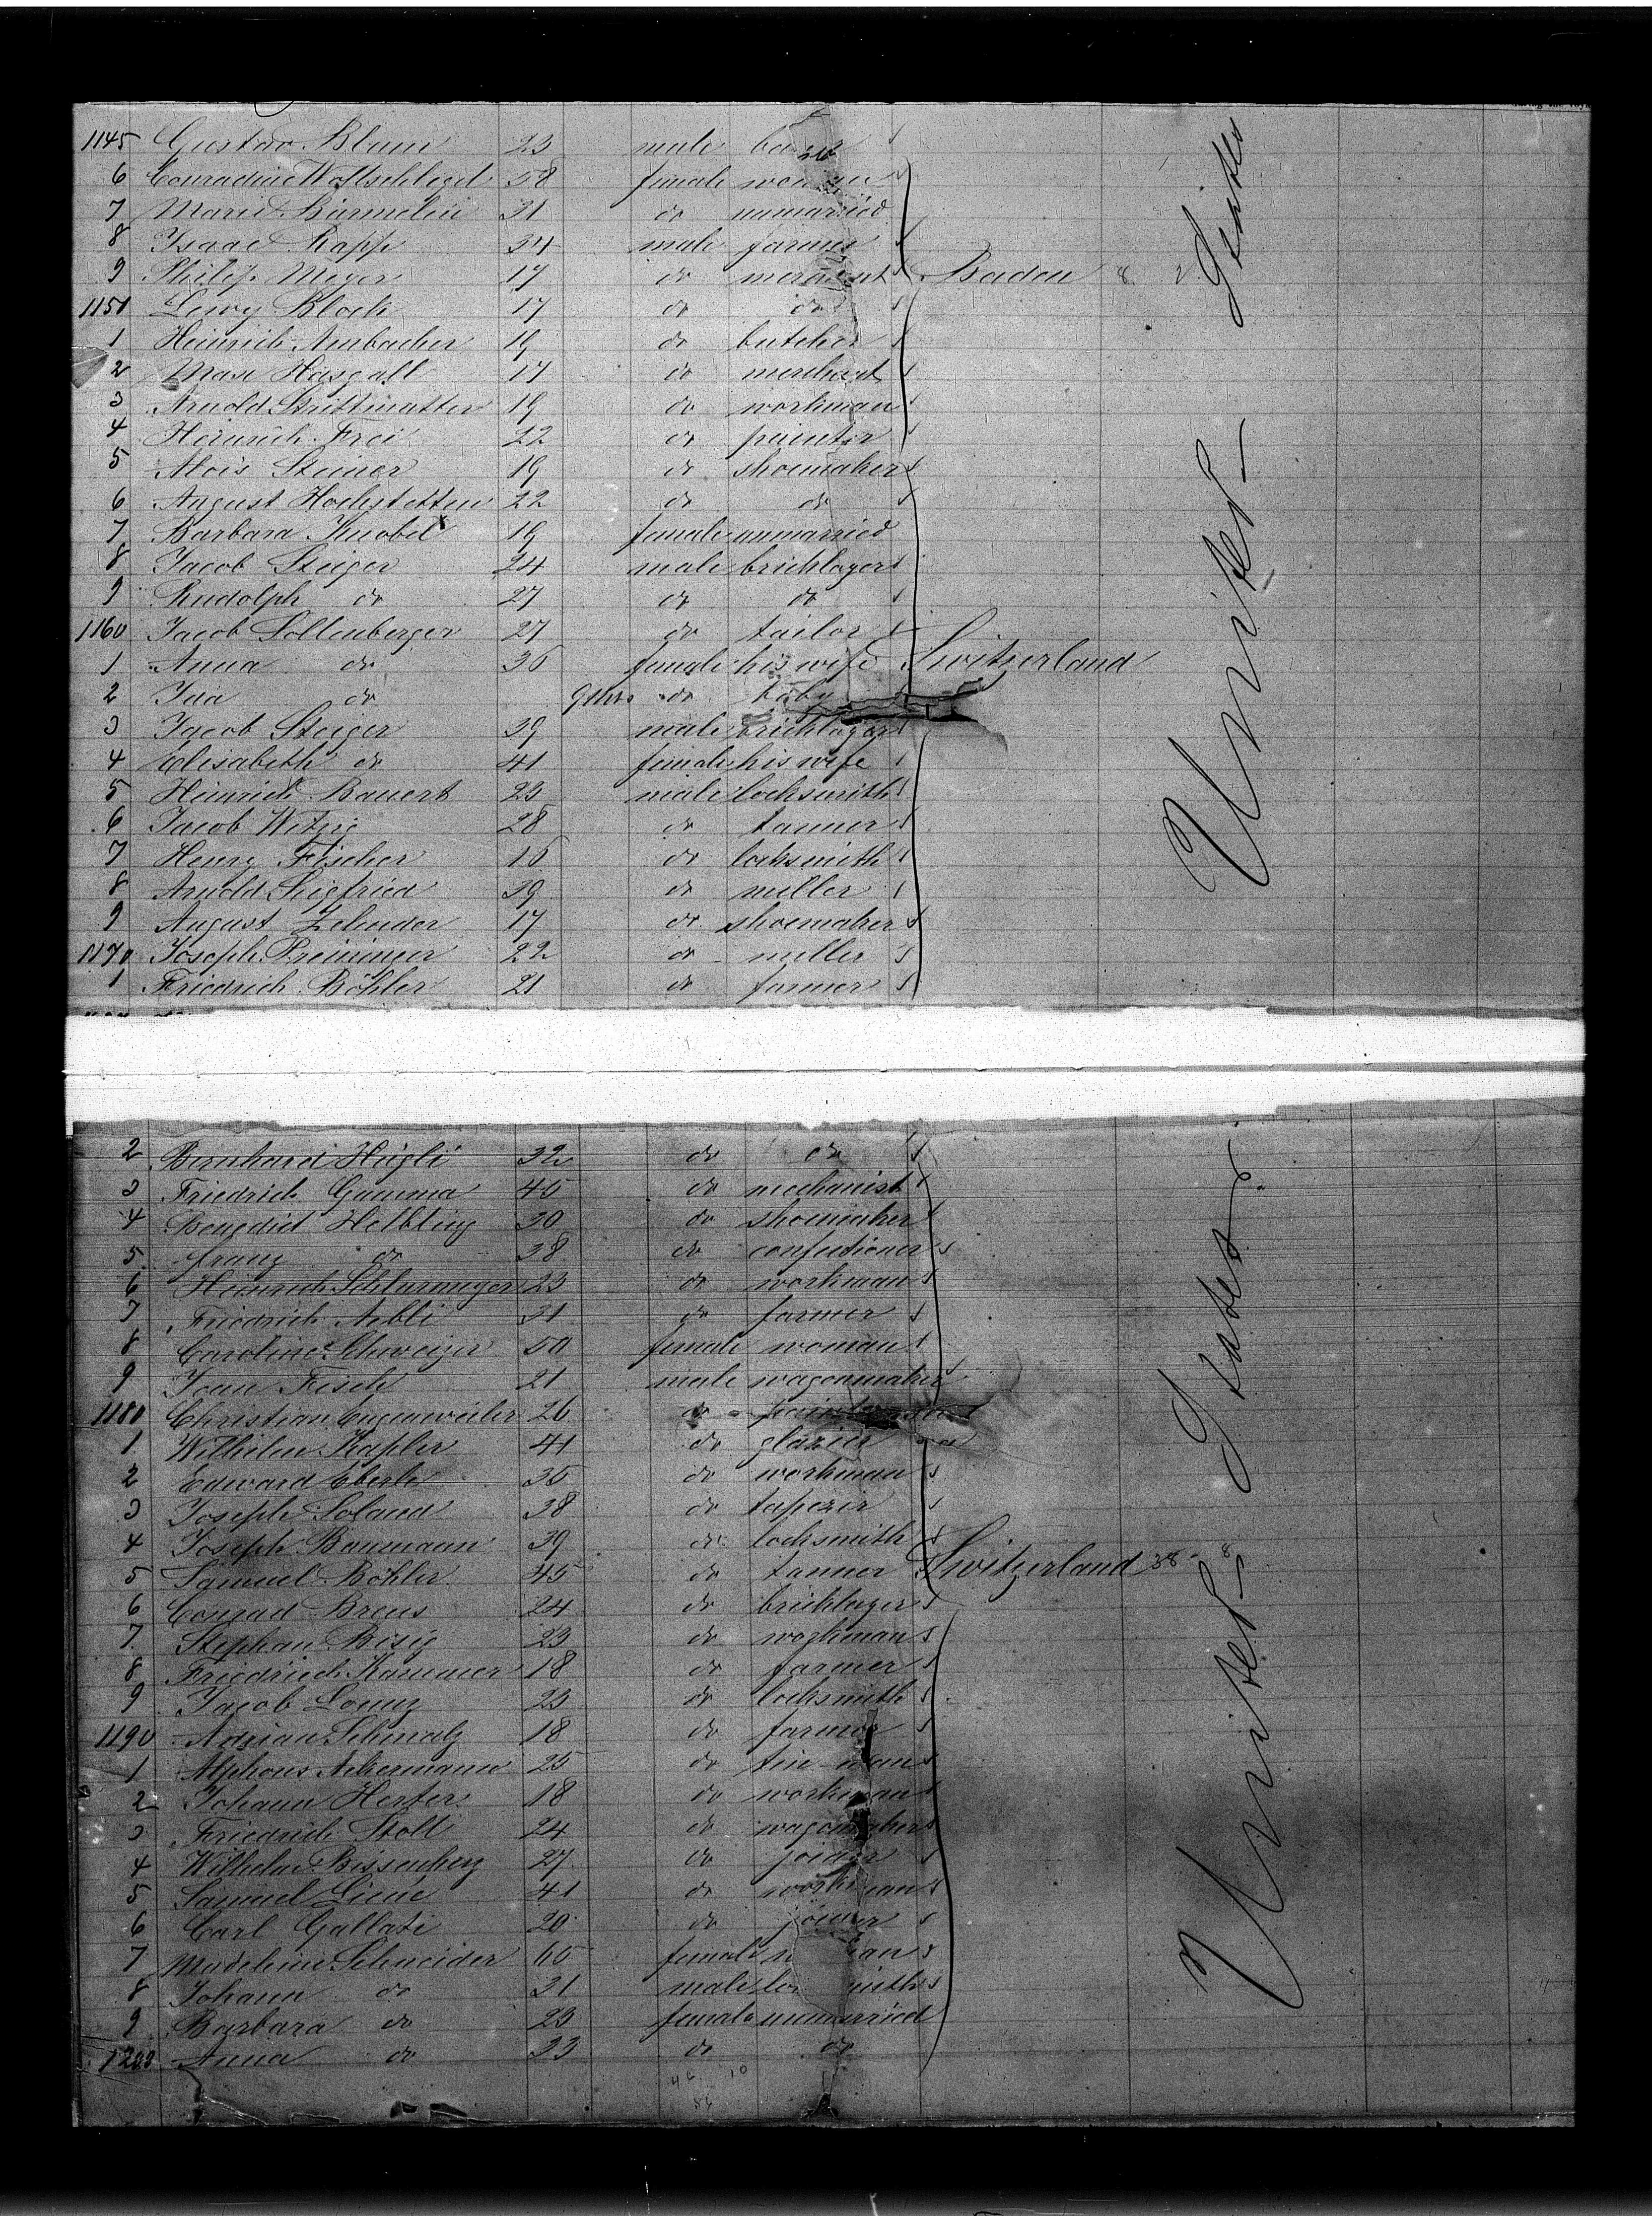 1145 Gustav Blum 23 male
6 Conradine Wollschlegel 58 female woman
7 Marie Bärmelin 31 do unmarried
8 Isaac Rapp 34 male farmer
9 Philip Meyer 17 do merchant Baden 8
1150 Levy Bloch 17 do do
1 Heinrich Ambacher 19 do butcher
2 Max Hasgall 17 do merchant
3 Arnold Strittmatter 19 do workman
4 Heinrich Frei 22 do painter
5 Alois Steiner 19 do shoemaker
6 August Hochstetter 22 do do
7 Barbara Knobel 19 female unmarried
8 Jacob Steiger 24 male bricklayer
9 Rudolph do 27 do do
1160 Jacob Sollenberger 27 do tailor
1 Anna do 36 female his wife Switzerland
2 Ida do 9 mos do baby
3 Jacob Steiger 39 male bricklayer
4 Elisabeth do 41 female his wife
5 Heinrich Bauert 23 male locksmith
6 Jacob Witzig 28 do tanner
7 Henry Fischer 16 do locksmith
8 Arnold Siegfried 39 do miller
9 August Zehnder 17 do shoemaker
1170 Joseph Preininger 22 do miller
1 Friedrich Böhler 21 do farmer
United States
2 Bernhard Hügli 32 do do
3 Friedrich Gamma 45 do mechanist
4 Benedict Helbling 30 do shoemaker
5 Franz do 38 do confectioner
6 Heinrich 23 do workman
7 Friedrich Aebli 31 do farmer
8 Caroline Schweizer 50 female woman
9 Joan Fisch 21 male wagonmaker
1180 Christian Engenweiler 26 do painter
1 Wilhelm Kapler 41 do glazier
2 Edward Eberle 35 do workman
3 Joseph Soland 38 do tapezir
4 Joseph Baumann 39 do locksmith
5 Samuel Böhler 45 do tanner Switzerland 38 8
6 Conrad Breus 24 do bricklayer
7 Stephan Bisig 23 do workman
8 Friedrich Kammer 18 do farmer
9 Jacob Lorenz 23 do locksmith
1190 Adrian Schmalz 18 do farmer
1 Alphons Ackermann 25 do tin-man
2 Johann Herter 18 do workman
3 Friedrich Stoll 24 do wagonmaker
4 Wilhelm Bissenberg 27 do joiner
5 Samuel Liene 41 do workman
6 Carl Gallati 20 do joiner
7 Madeleine Schneider 65 female woman
8 Johann do 31 male locksmith
9 Barbara do 23 female unmarried
1200 Anna do 23 do do
46 10
56
United States